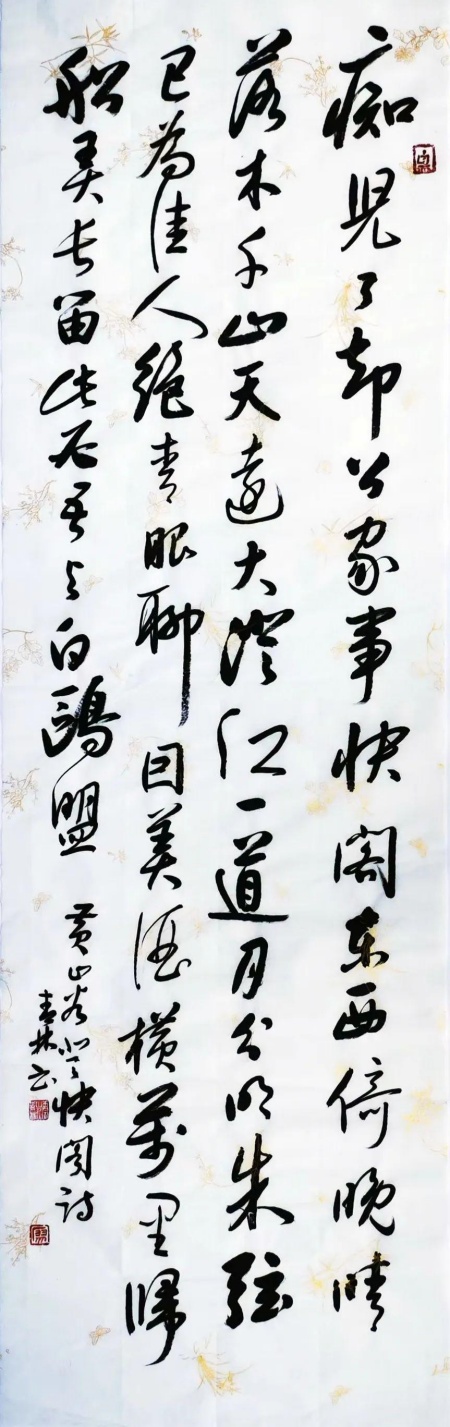 痴兒了却公家事快阁东西倚晚晴
落木千山天遠大澄江一道月分明朱弦
已為佳人絕青眼聊因美酒橫萬里歸
船弄长笛此心吾与白鷗盟
黄山谷登快阁诗
青林书